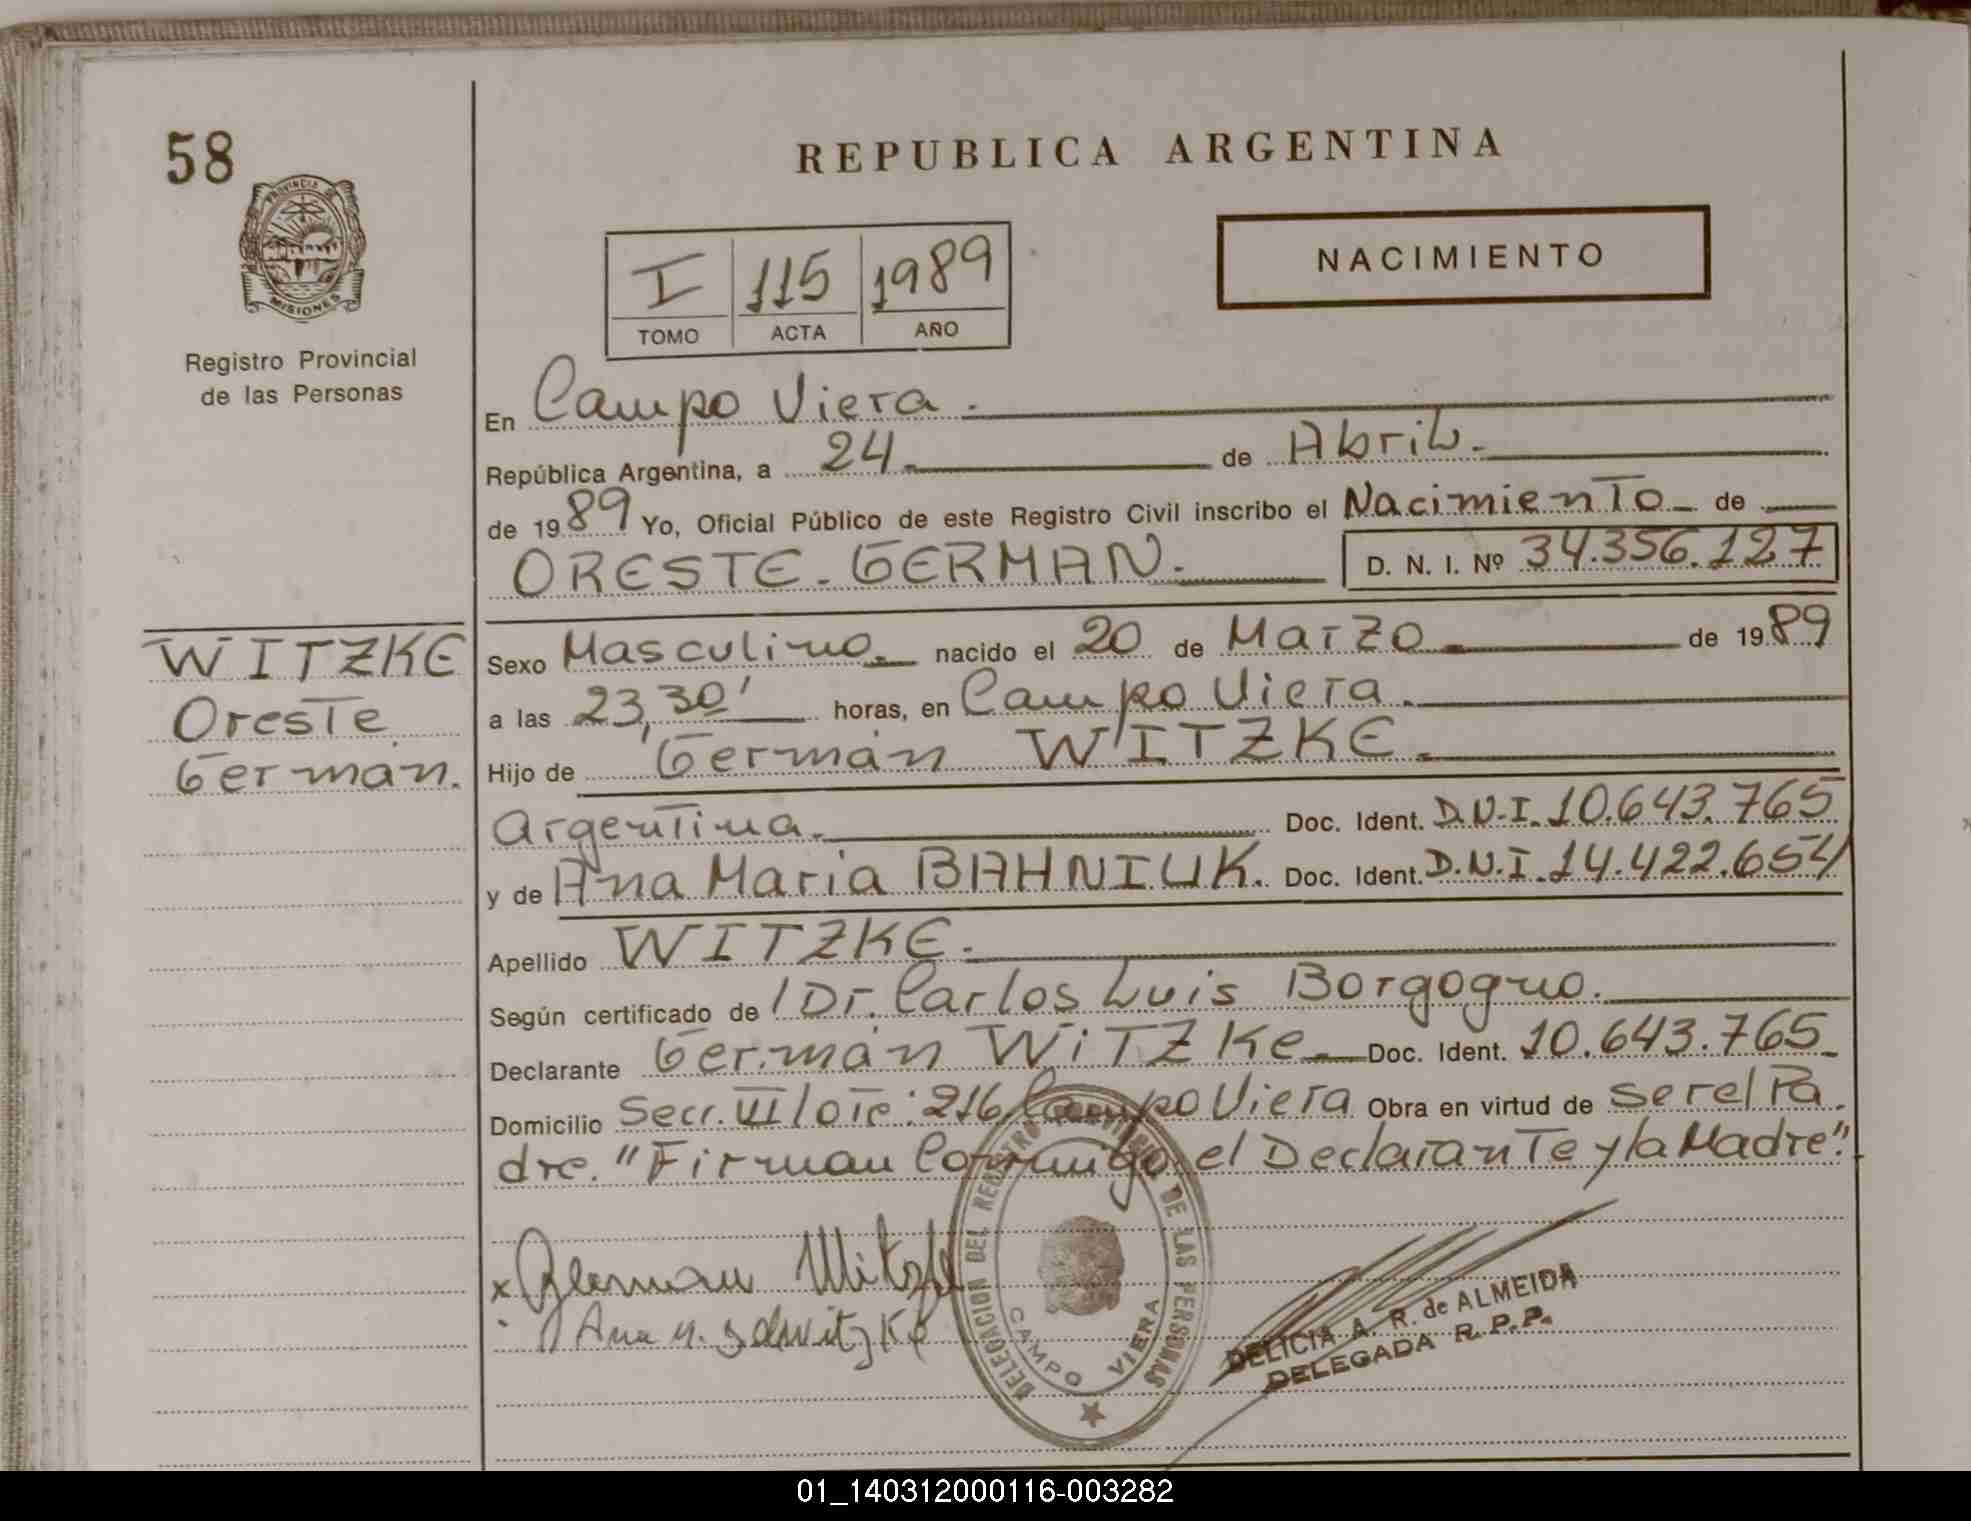 58
PROVINCIA DE
MISIONES
Registro Provincial
de las Personas
REPUBLICA ARGENTINA
NACIMIENTO
I 115 1989
TOMO ACTA AÑO
En Campo Viera.
República Argentina, a 24 de Abril.
de 1989 Yo, Oficial Público de este Registro Civil inscribo el Nacimiento de
ORESTE GERMAN. D. N. I. Nº 34.356.127
WITZKE
Oreste
German.
Sexo Masculino. nacido el 20 de Marzo de 1989
a las 23,30' horas, en Campo Viera.
Hijo de Germán WITZKE.
Argentina. Doc. Ident. D.N.I. 10.643.765
y de Ana Maria BAHNIUK. Doc. Ident. D.N.I. 14.422.654
Apellido WITZKE.
Según certificado de Dr. Carlos Luis Borgogno.
Declarante Germán WiTZKe. Doc. Ident. 10.643.765
Domicilio Secc. VII lote: 216 Campo Viera Obra en virtud de ser el Pa
dre. "Firman Conmigo, el Declarante y la Madre".
x German Witzke
Ana M. de Witzke
DELEGACION DEL REGISTRO PROVINCIAL DE LAS PERSONAS
CAMPO VIERA
DELICIA A. R. de ALMEIDA
DELEGADA R. P. P.
01_140312000116-003282